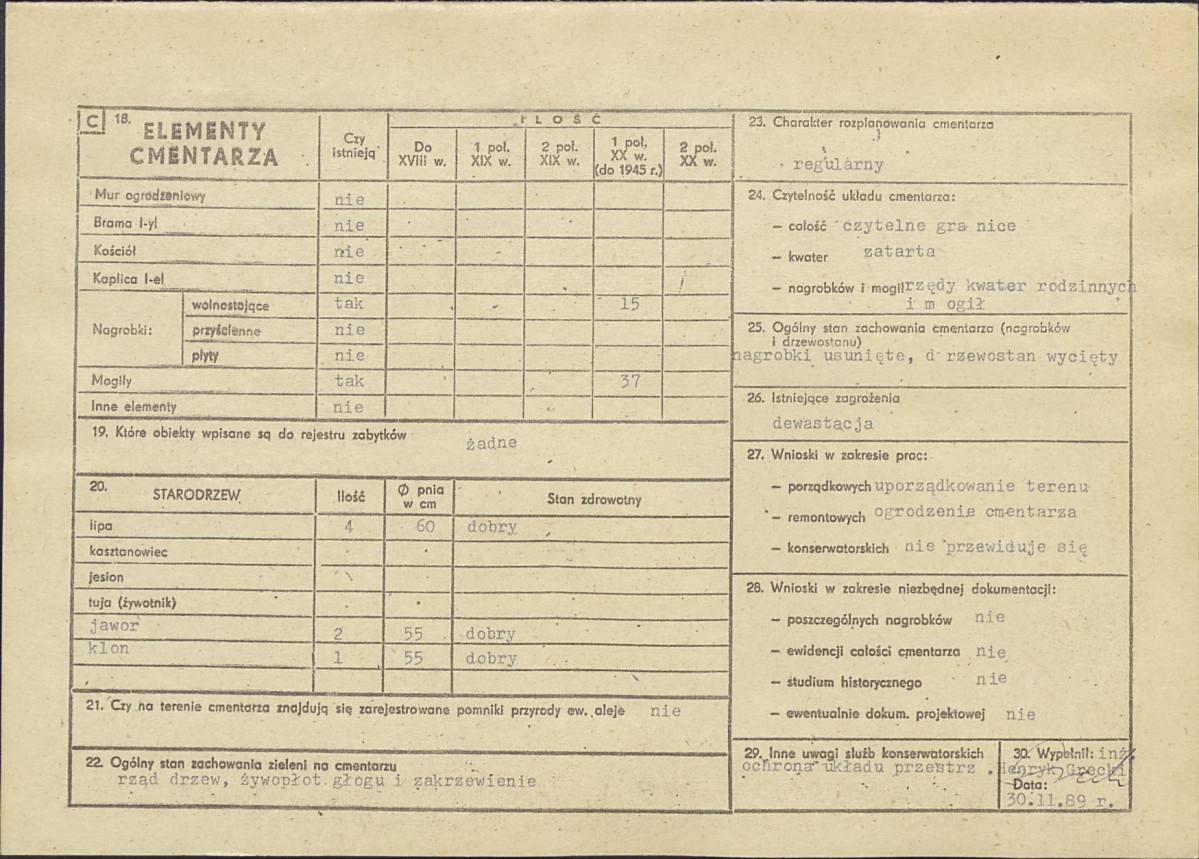 C 18. ELEMENTY CMENTARZA
Czy istnieją
IŁOŚĆ
Do XVIII w.
1 poł. XIX w.
2 poł. XIX w.
1 poł. XX w. (do 1945 r.)
2 poł. XX w.
Mur ogrodzeniowy nie
Brama I-yl nie
Kościół nie
Kaplica I-el nie
Nagrobki:
wolnostojące tak 15
przyścienne nie
płyty nie
Mogiły tak 37
Inne elementy nie
19. Które obiekty wpisane są do rejestru zabytków żadne
20. STARODRZEW Ilość Ø pnia w cm Stan zdrowotny
lipa 4 60 dobry
kasztanowiec
jesion
tuja (żywotnik)
jawor 2 55 dobry
klon 1 55 dobry
21. Czy na terenie cmentarza znajdują się zarejestrowane pomniki przyrody ew. aleje nie
22. Ogólny stan zachowania zieleni na cmentarzu
rząd drzew, żywopłot głogu i zakrzewienie
23. Charakter rozplanowania cmentarza
regularny
24. Czytelność układu cmentarza:
– całość czytelne gra nice
– kwater zatarta
– nagrobków i mogił rzędy kwater rodzinnych
i m ogił
25. Ogólny stan zachowania cmentarza (nagrobków
i drzewostanu)
nagrobki usunięte, d rzewostan wycięty
26. Istniejące zagrożenia
dewastacja
27. Wnioski w zakresie prac:
– porządkowych uporządkowanie terenu
– remontowych ogrodzenie cmentarza
– konserwatorskich nie przewiduje się
28. Wnioski w zakresie niezbędnej dokumentacji:
– poszczególnych nagrobków nie
– ewidencji całości cmentarza nie
– studium historycznego nie
– ewentualnie dokum. projektowej nie
29. Inne uwagi służb konserwatorskich
ochrona układu przestrz.
30. Wypełnił: inż.
Henryk Grecki
Data:
30.11.89 r.